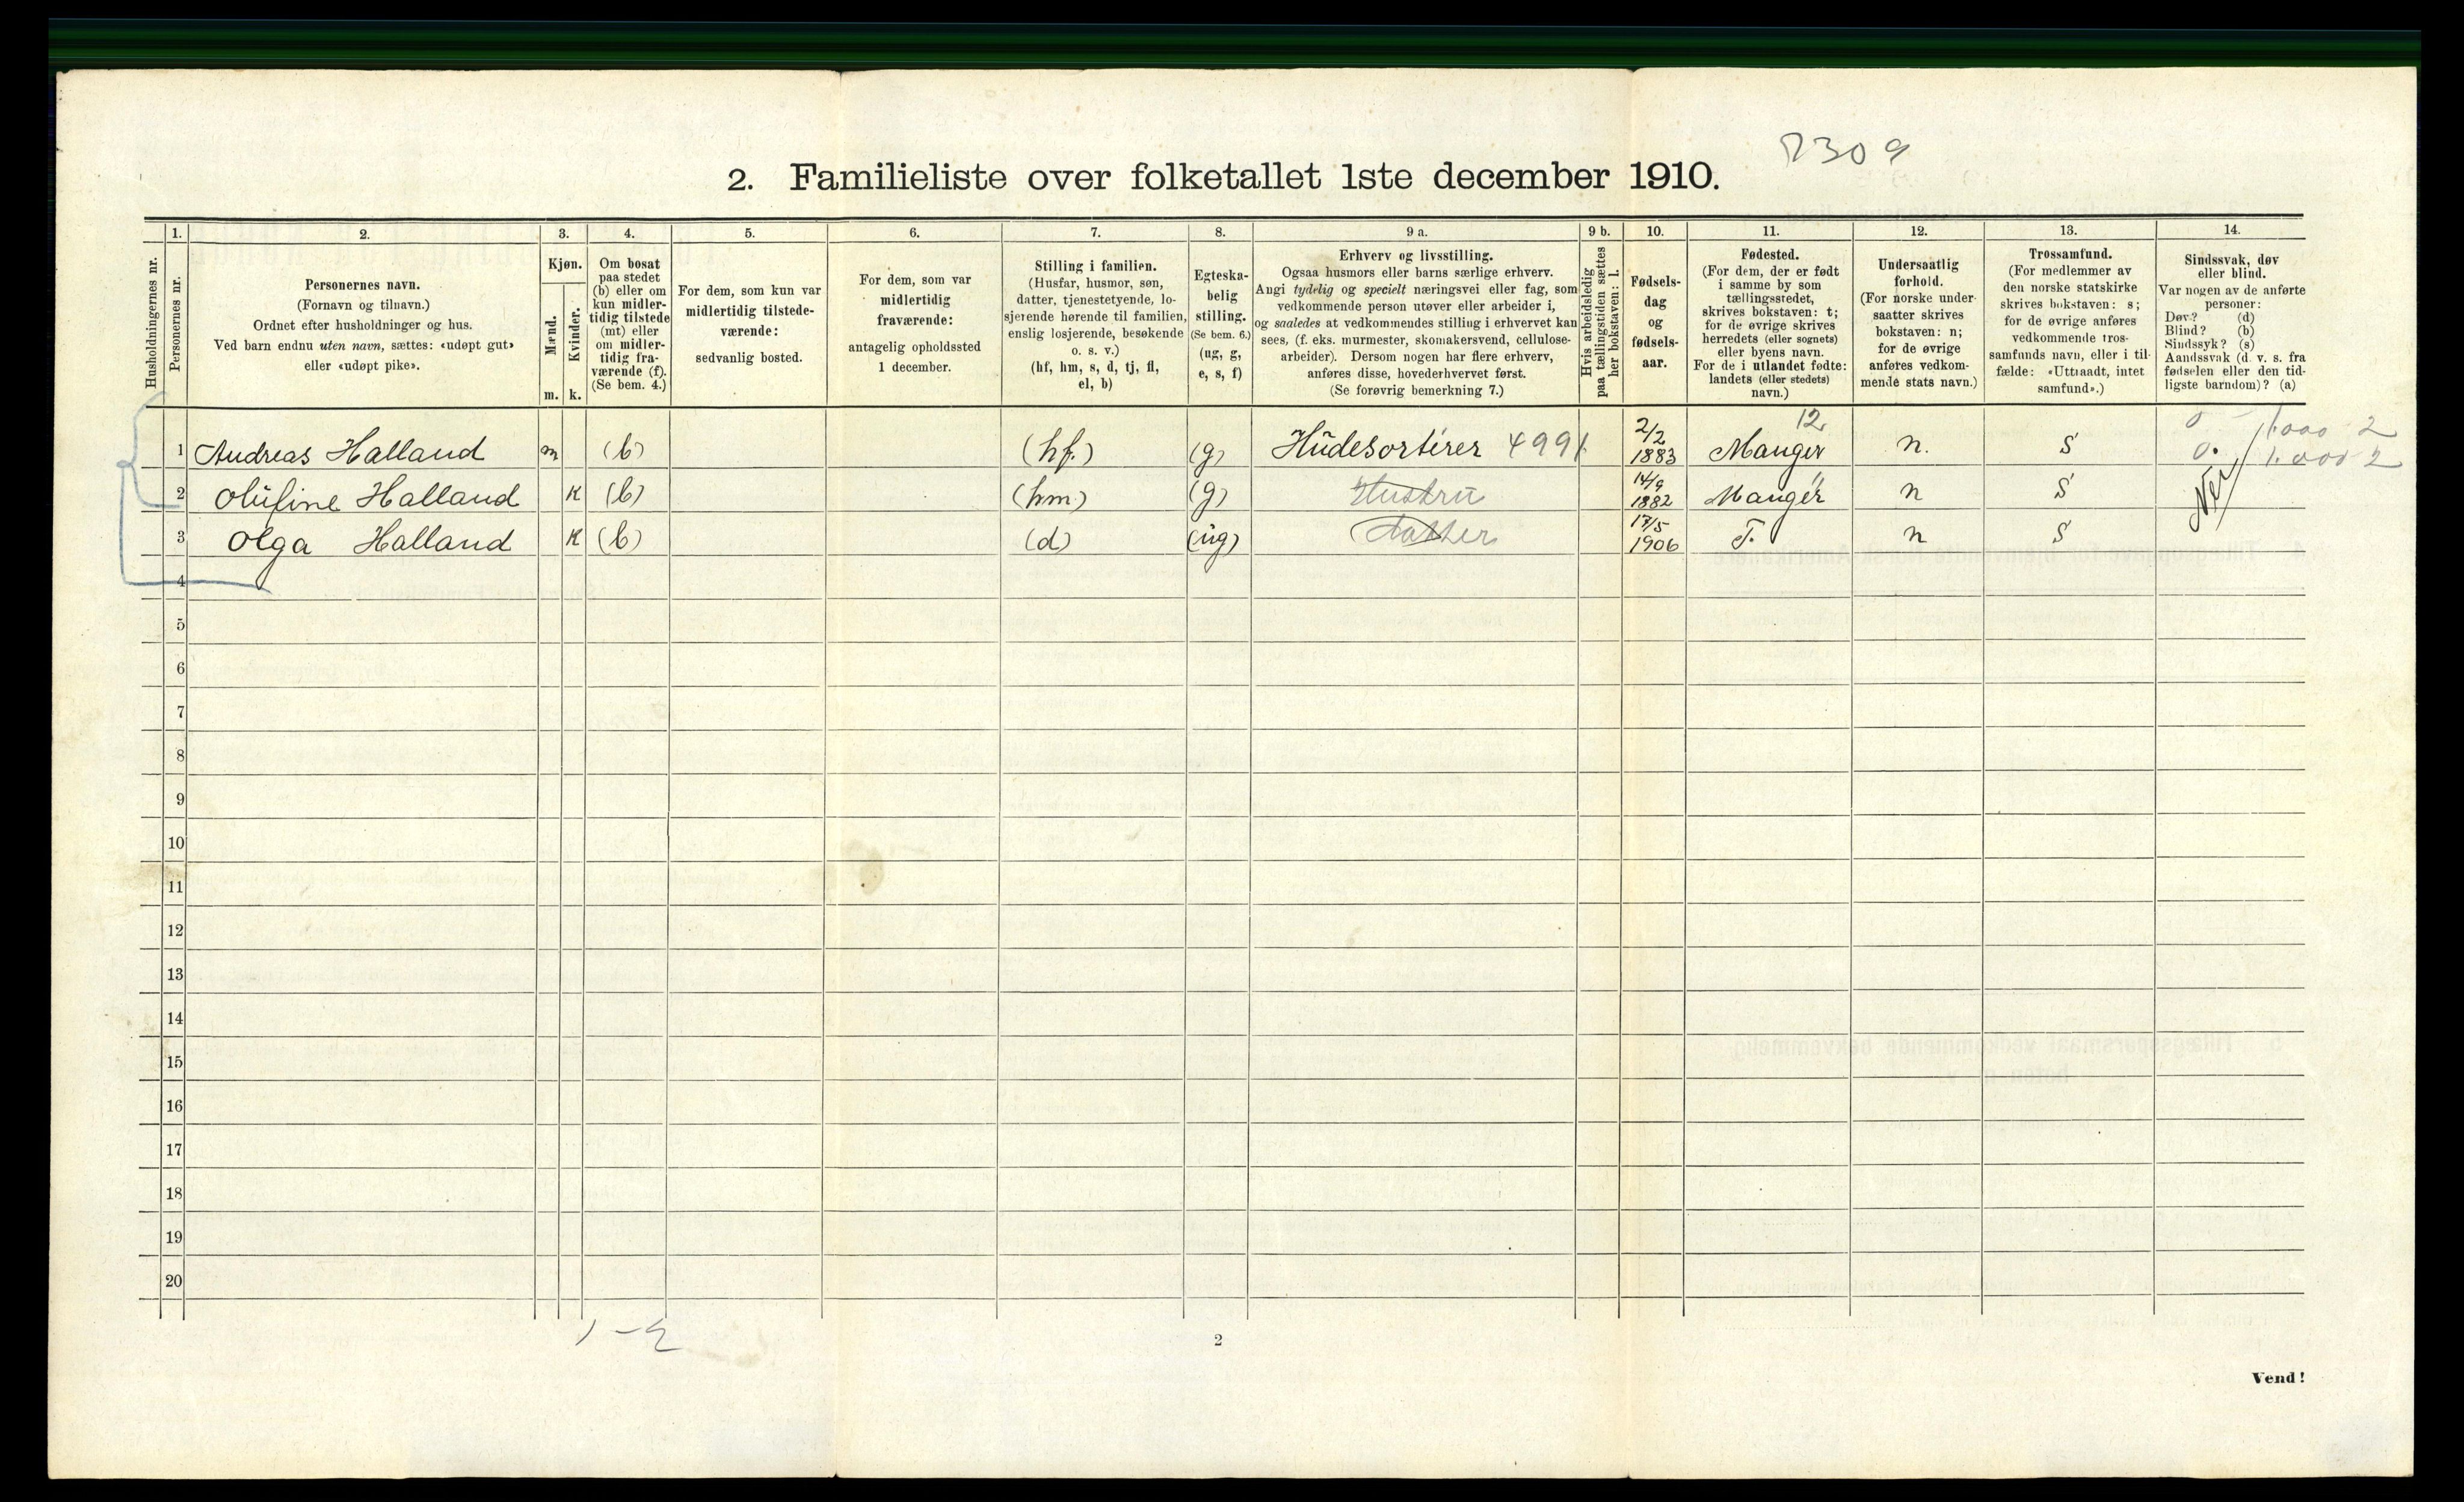 2309
2. Familieliste over folketallet 1ste december 1910.
Husholdningernes nr.
1.
Personernes nr.
2.
Personernes navn.
(Fornavn og tilnavn.)
Ordnet efter husholdninger og hus.
Ved barn endnu uten navn, sættes: «udøpt gut»
eller «udøpt pike».
3.
Kjøn.
Mænd.
Kvinder.
m. k.
4.
Om bosat
paa stedet
(b) eller om
kun midler-
tidig tilstede
(mt) eller
om midler-
tidig fra-
værende (f).
(Se bem. 4.)
5.
For dem, som kun var
midlertidig tilstede-
værende:
sedvanlig bosted.
6.
For dem, som var
midlertidig
fraværende:
antagelig opholdssted
1 december.
7.
Stilling i familien.
(Husfar, husmor, søn,
datter, tjenestetyende, lo-
sjerende hørende til familien,
enslig losjerende, besøkende
o. s. v.)
(hf, hm, s, d, tj, fl,
el, b)
8.
Egteska-
belig
stilling.
(Se bem. 6.)
(ug, g,
e, s, f)
9 a.
Erhverv og livsstilling.
Ogsaa husmors eller barns særlige erhverv.
Angi tydelig og specielt næringsvei eller fag, som
vedkommende person utøver eller arbeider i,
og saaledes at vedkommendes stilling i erhvervet kan
sees, (f. eks. murmester, skomakersvend, cellulose-
arbeider). Dersom nogen har flere erhverv,
anføres disse, hovederhvervet først.
(Se forøvrig bemerkning 7.)
9 b.
Hvis arbeidsledig
paa tællingstiden sættes
her bokstaven: l.
10.
Fødsels-
dag
og
fødsels-
aar.
11.
Fødested.
(For dem, der er født
i samme by som
tællingsstedet,
skrives bokstaven: t;
for de øvrige skrives
herredets (eller sognets)
eller byens navn.
For de i utlandet fødte:
landets (eller stedets)
navn.)
12.
Undersaatlig
forhold.
(For norske under-
saatter skrives
bokstaven: n;
for de øvrige
anføres vedkom-
mende stats navn.)
13.
Trossamfund.
(For medlemmer av
den norske statskirke
skrives bokstaven: s;
for de øvrige anføres
vedkommende tros-
samfunds navn, eller i til-
fælde: «Uttraadt, intet
samfund».)
14.
Sindssvak, døv
eller blind.
Var nogen av de anførte
personer:
Døv? (d)
Blind? (b)
Sindssyk? (s)
Aandssvak (d. v. s. fra
fødselen eller den tid-
ligste barndom)? (a)
12.
0 1.000 2
1 Andreas Halland m (b) (hf.) (g) Hudesortérer 4991. 2/2 1883 Manger n. S 0. 1.000 2
2 Olufine Halland K (b) (hm) (g) Hustru 14/9 1882 Manger n S Nei
3 Olga Halland K (b) (d) (ug) datter 17/5 1906 T. n S
4
5
6
7
8
9
10
11
12
13
14
15
16
17
18
19
20
1-2
2
Vend!